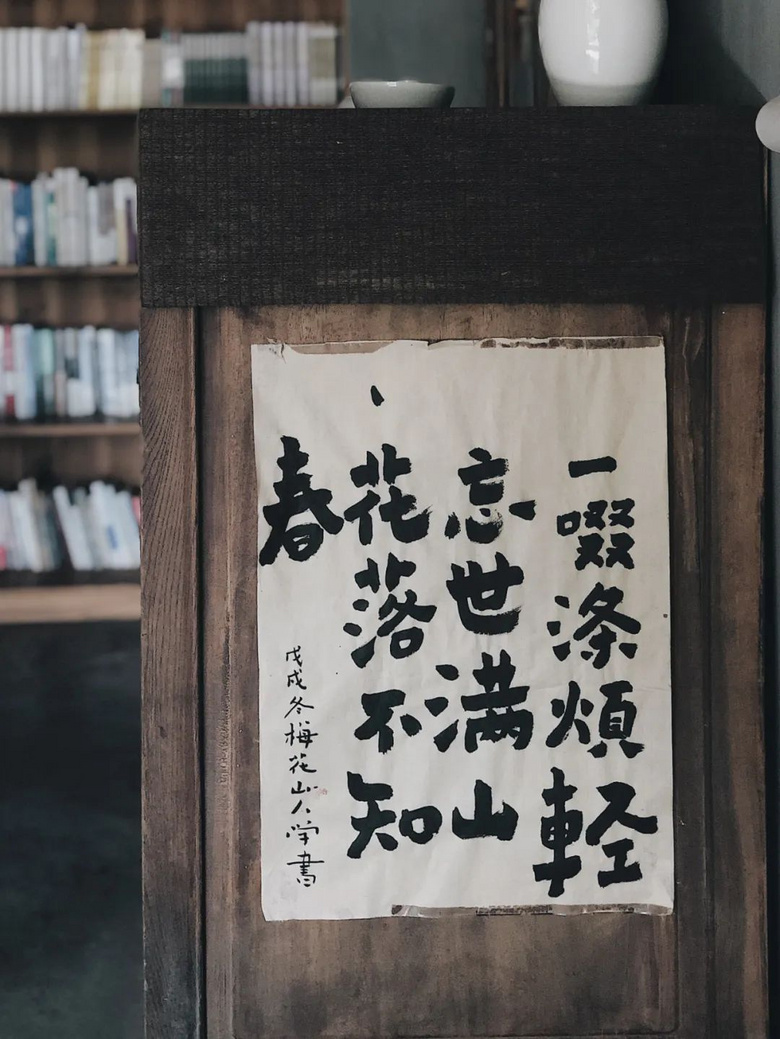 一啜涤煩輕
忘世满山
花落不知
春
戊戌冬梅花山人学書